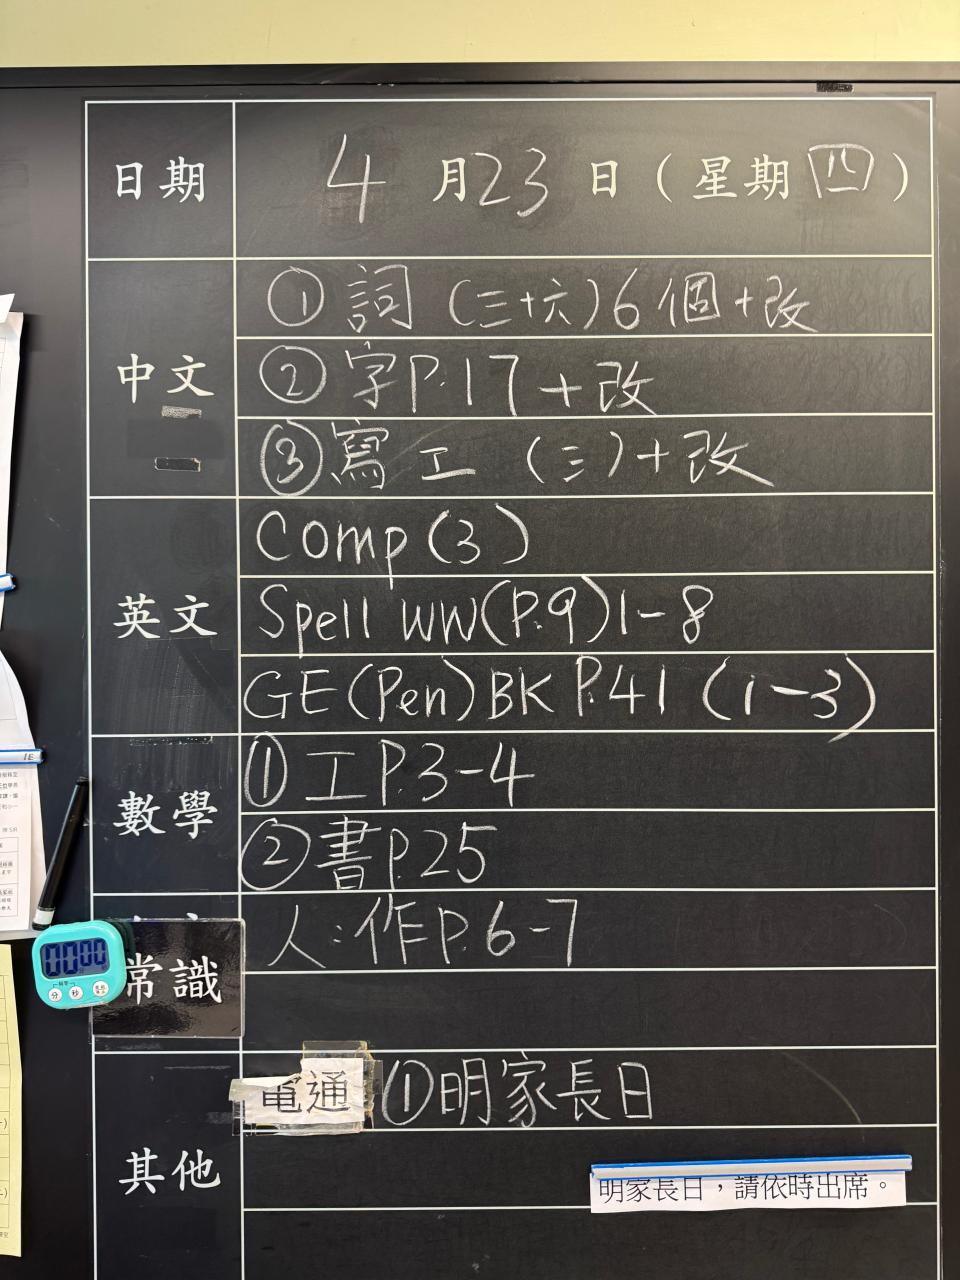 日期 4月23日(星期四)
中文
①詞(三十六)6個+改
②字P.17+改
③寫工(三)+改
英文
Comp(3)
Spell WW(P.9)1-8
GE(Pen)BK P.41(1-3)
數學
①工P.3-4
②書P.25
常識
人:作P.6-7
其他
電通 ①明家長日
明家長日,請依時出席。
00:00
分 秒
1E